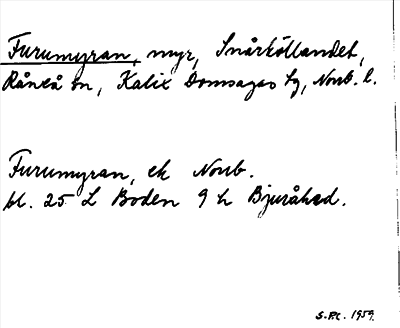 Furumyran, myr, Snårkôllandet,
Råneå sn, Kalix Domsagas tg, Norrb. l.
Furumyran, ek Norrb.
bl. 25 L Boden 9 h Bjuråhed.
S.P.C. 1959.